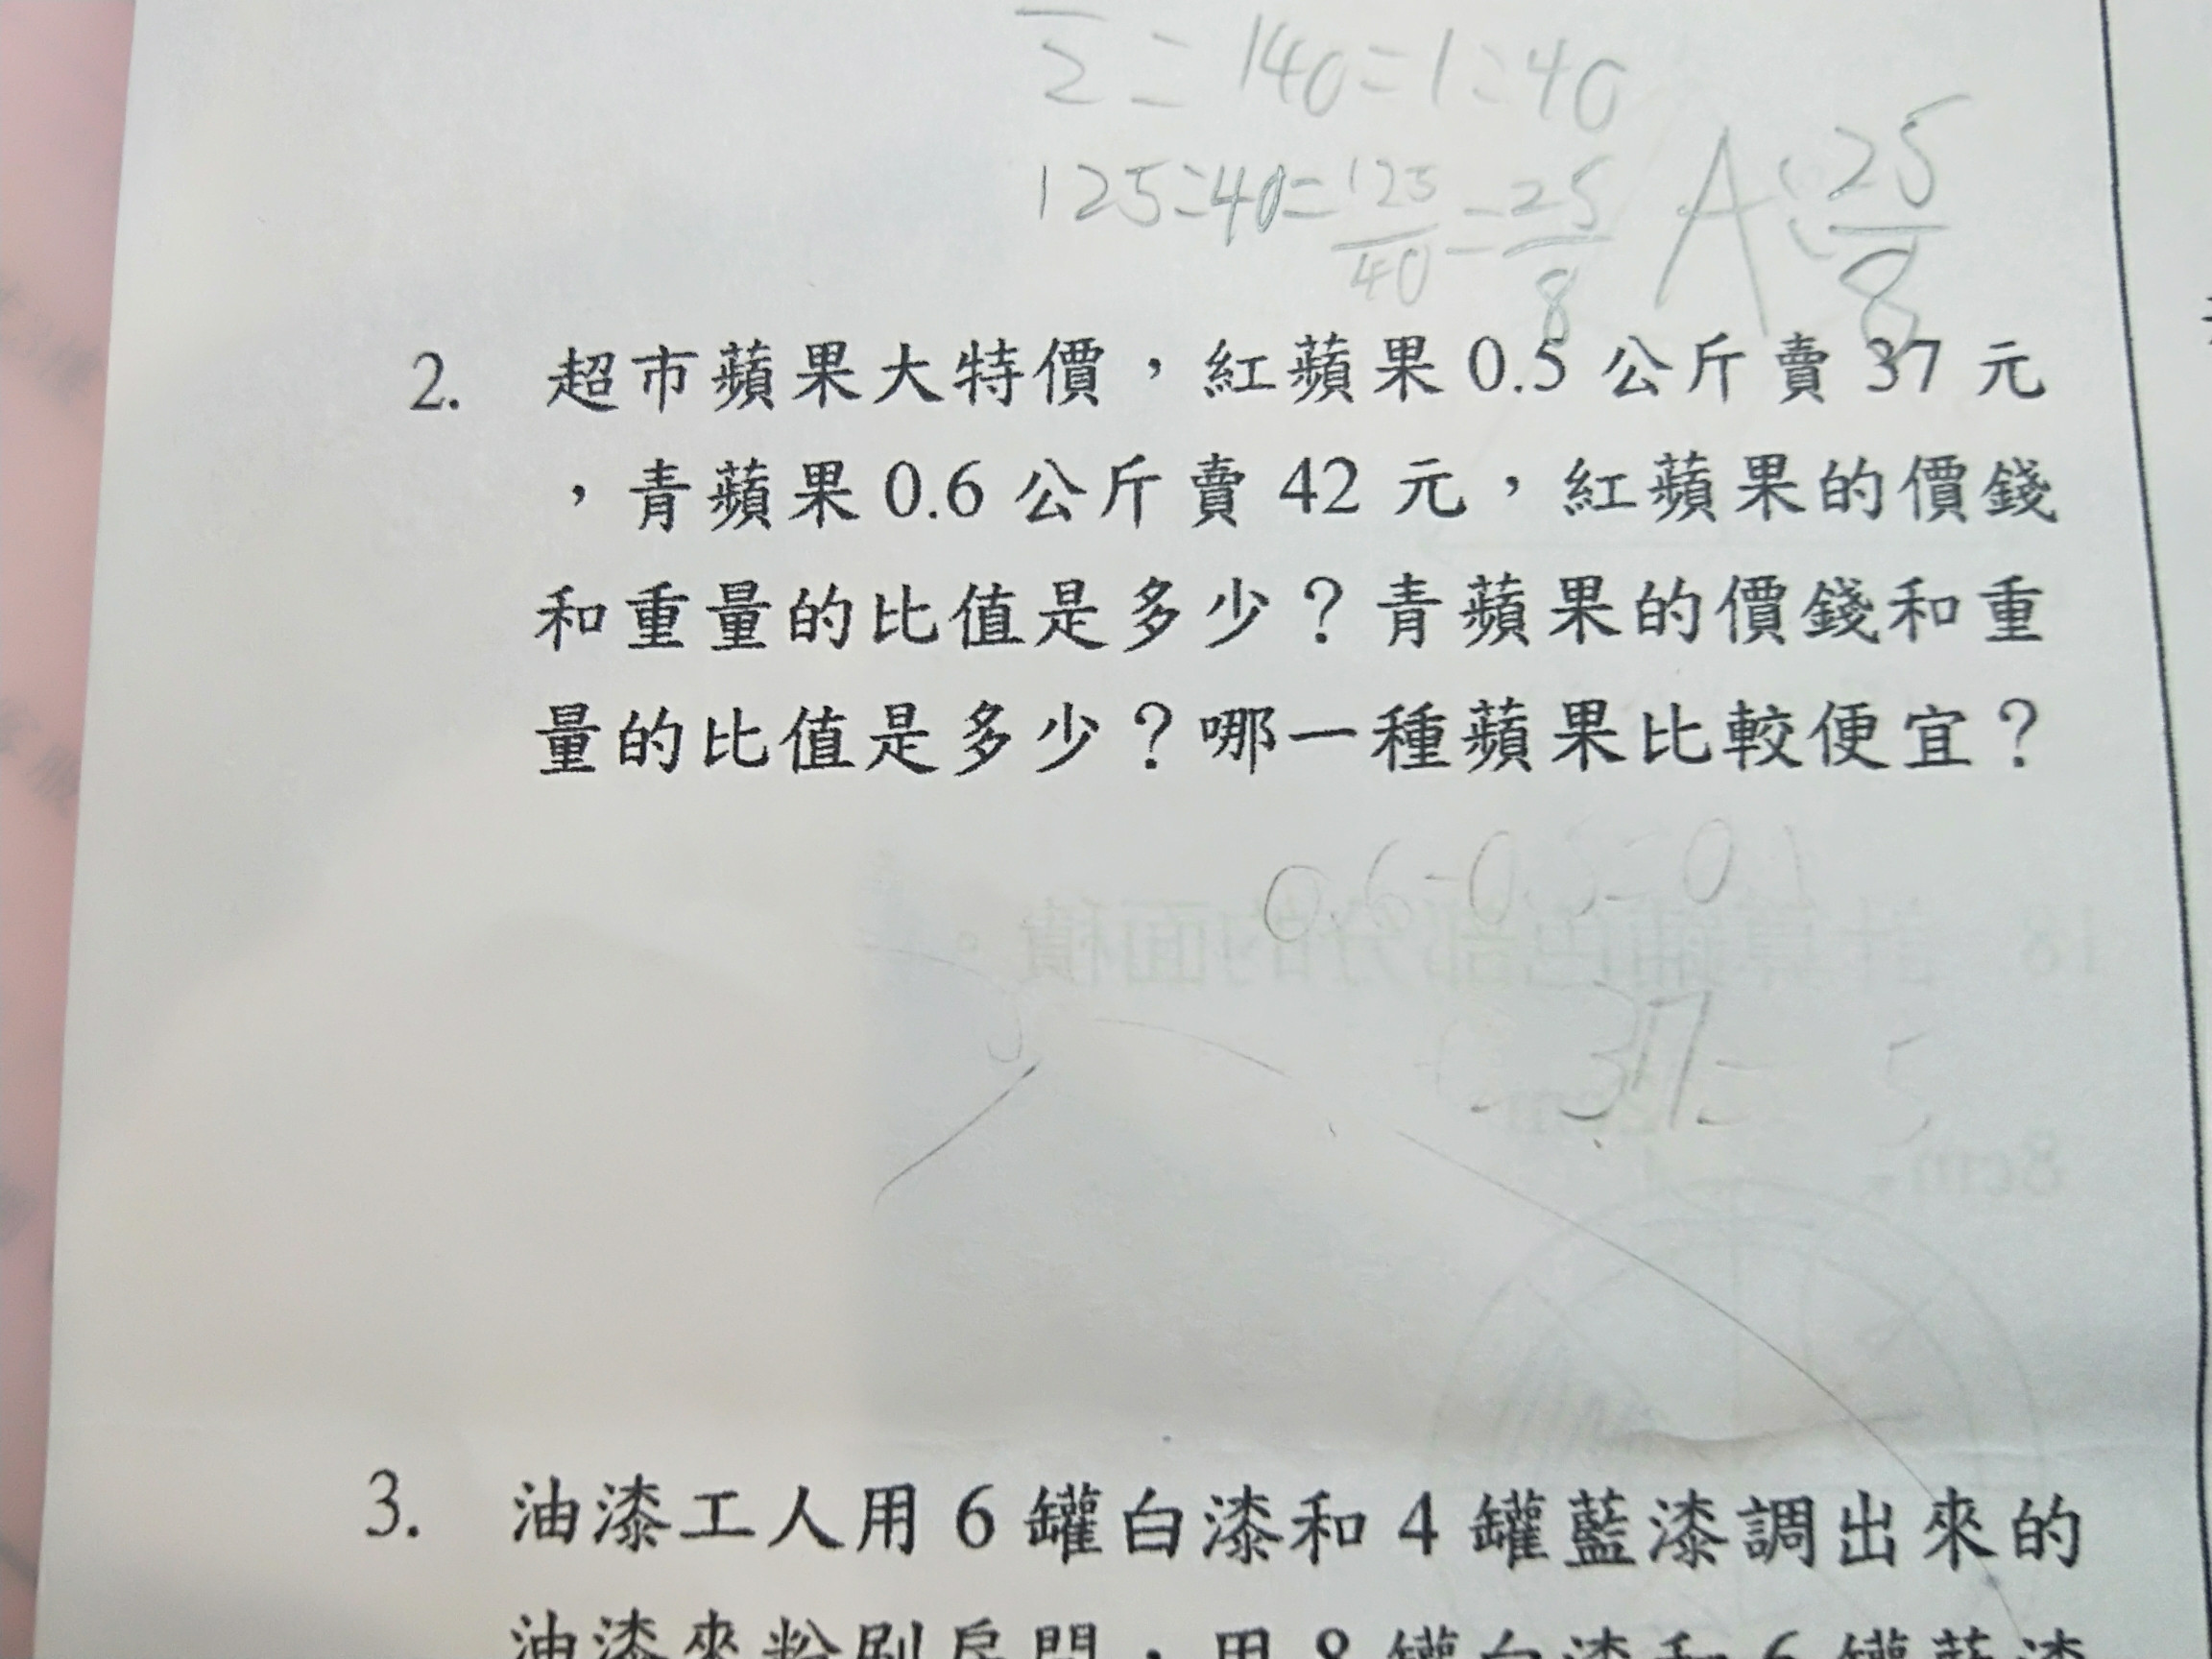 2 = 140 = 1 : 40
125 : 40 = 125/40 = 25/8 A : 25/8
2. 超市蘋果大特價，紅蘋果 0.5 公斤賣 37 元
，青蘋果 0.6 公斤賣 42 元，紅蘋果的價錢
和重量的比值是多少？青蘋果的價錢和重
量的比值是多少？哪一種蘋果比較便宜？
0.6-0.5=0.1
37=
3. 油漆工人用 6 罐白漆和 4 罐藍漆調出來的
油漆來粉刷房間，用 8 罐白漆和 6 罐藍漆